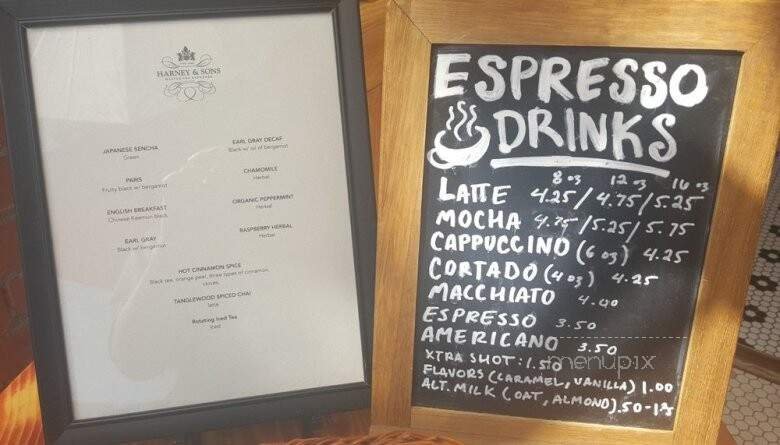 HARNEY & SONS
JAPANESE SENCHA
Green
PARIS
Fruity black w/ bergamot
ENGLISH BREAKFAST
Chinese Keemun black
EARL GRAY
Black w/ bergamot
EARL GRAY DECAF
Black w/ oil of bergamot
CHAMOMILE
Herbal
ORGANIC PEPPERMINT
Herbal
RASPBERRY HERBAL
Herbal
HOT CINNAMON SPICE
Black tea, orange peel, three types of cinnamon,
cloves,
TANGLEWOOD SPICED CHAI
latte
Rotating Iced Tea
Iced
ESPRESSO
DRINKS
8 oz 12 oz 16 oz
LATTE 4.25/4.75/5.25
MOCHA 4.75/5.25/5.75
CAPPUCCINO (6 oz) 4.25
CORTADO (4 oz) 4.25
MACCHIATO 4.00
ESPRESSO 3.50
AMERICANO 3.50
XTRA SHOT: 1.50
FLAVORS (CARAMEL, VANILLA) 1.00
ALT. MILK (OAT, ALMOND)
menupix